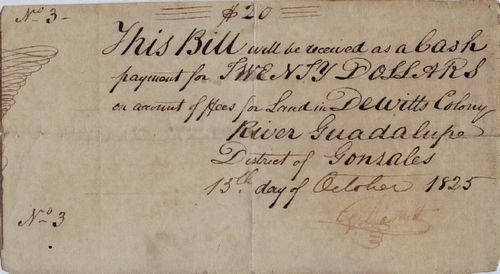 No. 3. $20
This Bill will be received as a Cash
payment for TWENTY DOLLARS
on account of ffees for Land in Dewitts Colony
River Guadalupe
District of Gonzales
15th. day of October 1825
No. 3